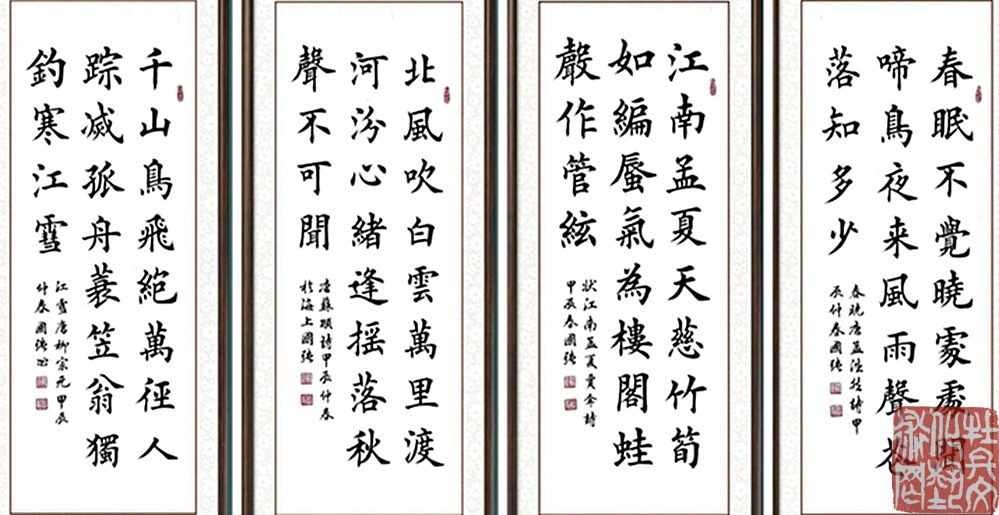 春眠不覺曉處處聞
啼鳥夜来風雨聲花
落知多少
春晓唐孟浩然詩甲
辰仲春國强
江南孟夏天慈竹筍
如編蜃氣為樓閣蛙
聲作管絃
状江南孟夏賈弇詩
甲辰春國强
北風吹白雲萬里渡
河汾心緒逢摇落秋
聲不可聞
唐蘇頲詩甲辰仲春
於海上國强
千山鳥飛絕萬徑人
踪滅孤舟蓑笠翁獨
釣寒江雪
江雪唐柳宗元甲辰
仲春國强